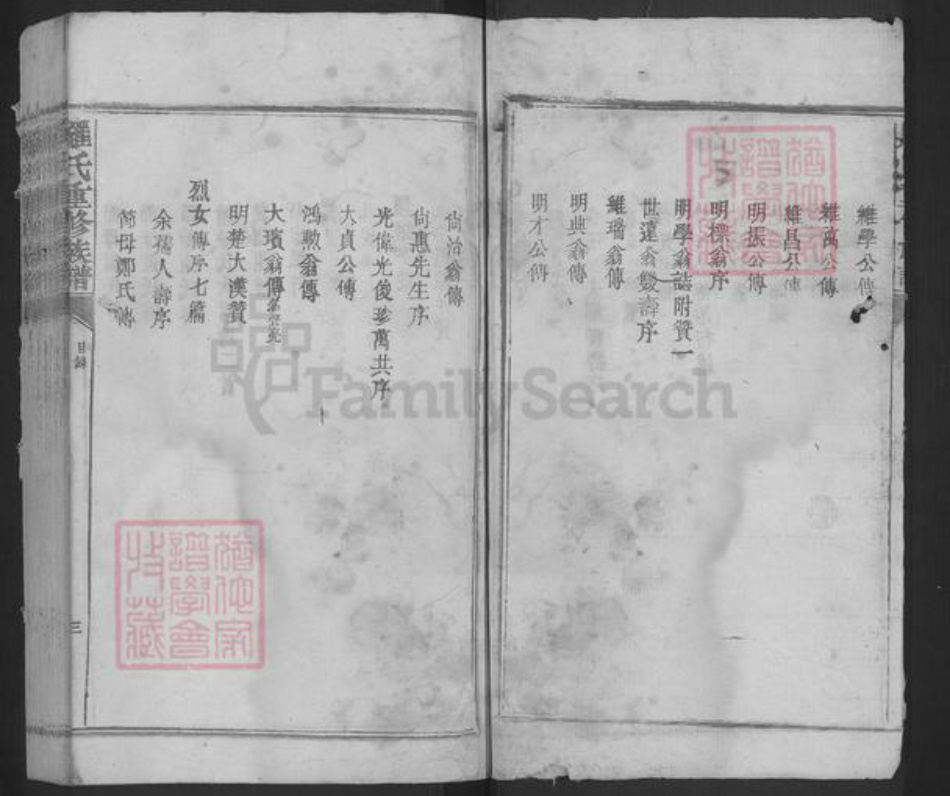 維學公傳
維萬公傳
維昌公傳
明振公傳
明標翁序
明學翁誌附贊一
世達翁雙壽序
維璠翁傳
明典翁傳
明才公傳
尙治翁傳
尙惠先生序
光偉光俊珍萬共序
大貞公傳
鴻勲翁傳
大璸翁傳
明楚大漢贊
烈女傳序七篇
余孺人壽序
簡母鄭氏傳
羅氏重修族譜
目錄
三
譜學會
藏
FamilySearch